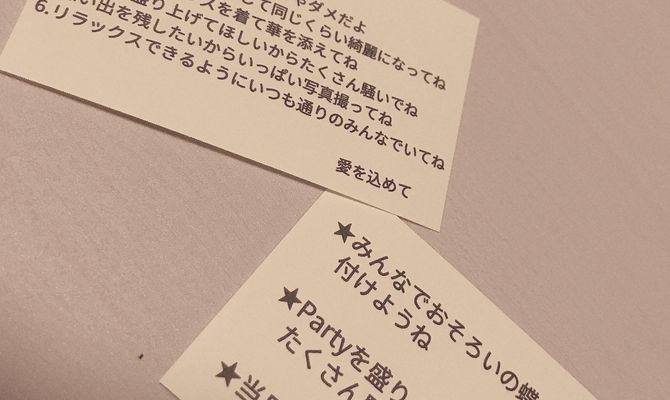 ヤダメだよ
して同じくらい綺麗になってね
スを着て華を添えてね
盛り上げてほしいからたくさん騒いでね
い出を残したいからいっぱい写真撮ってね
6.リラックスできるようにいつも通りのみんなでいてね
愛を込めて
★みんなでおそろいの蝶
付けようね
★Partyを盛り
たくさん
★当